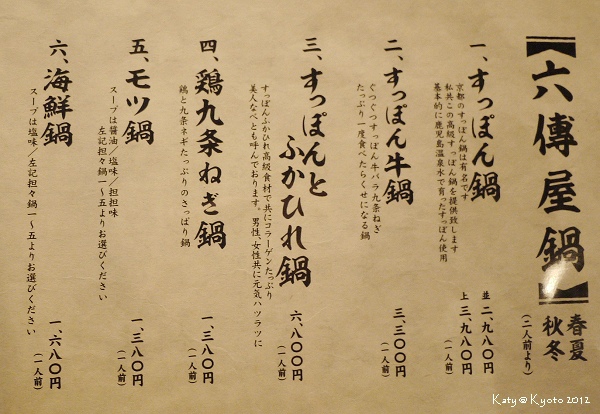 【六傳屋鍋】
春夏
秋冬
(二人前より)
一、すっぽん鍋
京都のすっぽん鍋は有名です
私共この高級すっぽん鍋を提供致します
基本的に鹿児島温泉水で育ったすっぽん使用
並 二、九八〇円
上 三、九八〇円
(一人前)
二、すっぽん牛鍋
ぐつぐつすっぽん牛バラ九条ねぎ
たっぷり一度食べたらくせになる鍋
三、三〇〇円
(一人前)
三、すっぽんと
ふかひれ鍋
すっぽんふかひれ高級食材で共にコラーゲンたっぷり
美人なべとも呼んでおります。男性、女性共に元気ハツラツに
六、八〇〇円
(一人前)
四、鶏九条ねぎ鍋
鶏と九条ネギたっぷりのさっぱり鍋
一、三八〇円
(一人前)
五、モツ鍋
スープは醤油/塩味/担担味
左記担々鍋一〜五よりお選びください
一、三八〇円
(一人前)
六、海鮮鍋
スープは塩味/左記担々鍋一〜五よりお選びください
一、六八〇円
(一人前)
Katy@Kyoto 2012